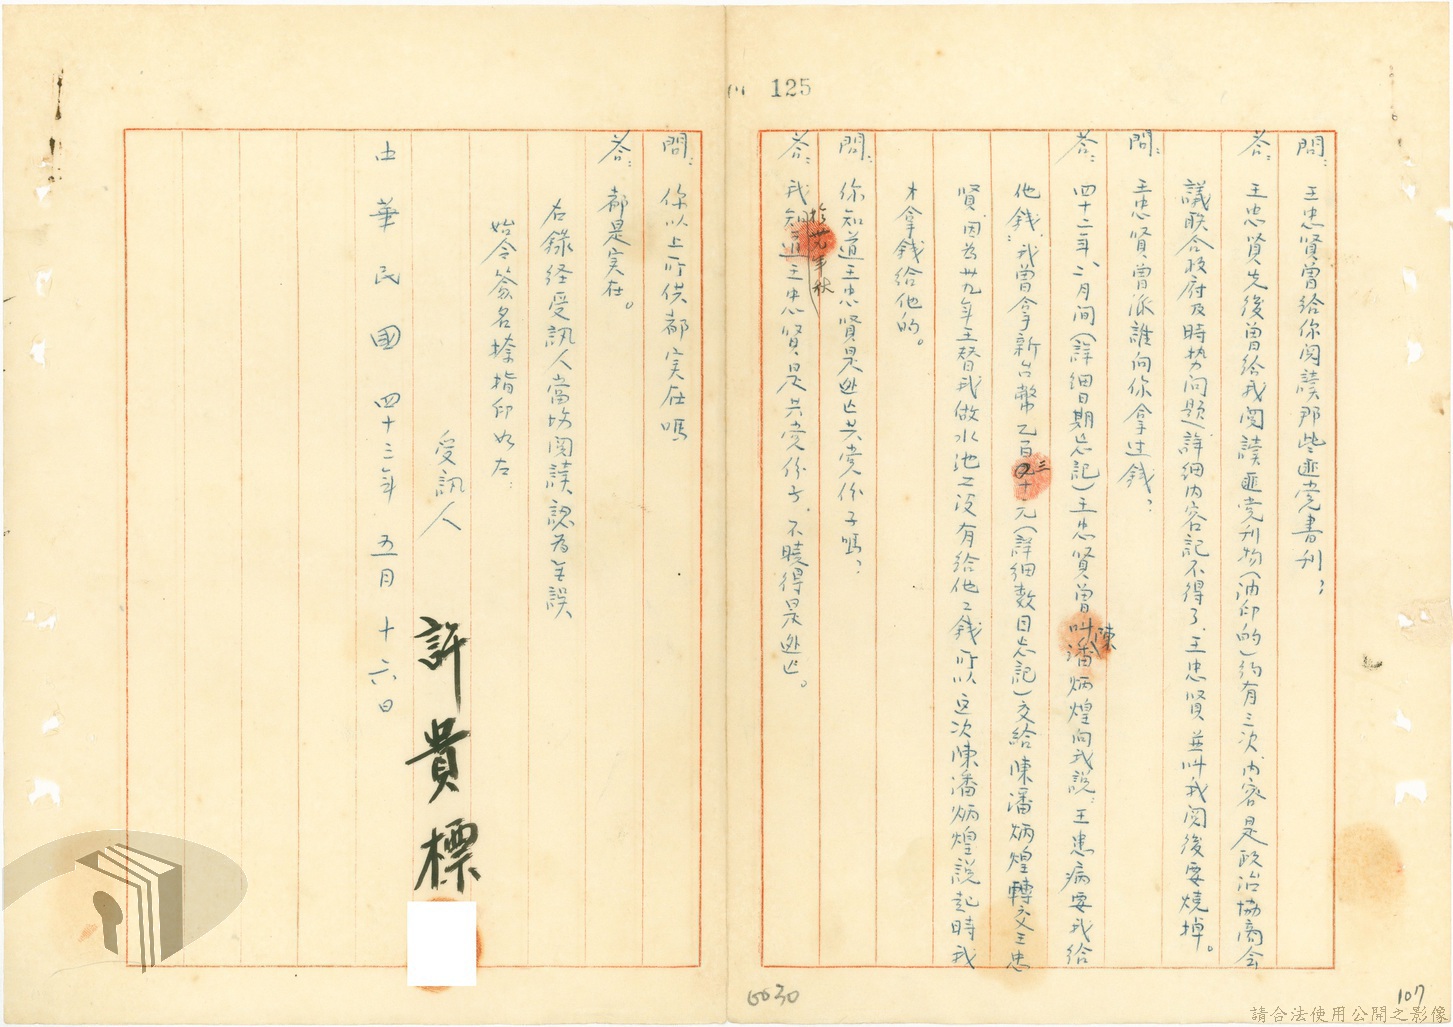 125
問：王忠賢曾給你閱讀那些匪党書刊？
答：王忠賢先後曾給我閱讀匪党刊物（油印的）約有三次、內容是政治協商会
議联合政府及時势问题、詳細內容記不得了、王忠賢並叫我閱後要燒掉。
問：王忠賢曾派誰向你拿过錢？
答：四十二年六月间（詳細日期忘記）王忠賢曾叫陳潘炳煌向我說：王患病要我給
他錢、我曾拿新台幣乙百三十元（詳細数目忘記）交給陳潘炳煌轉交王忠
賢、因为卅九年王替我做水池工没有給他工錢所以这次陳潘炳煌說起時我
才拿錢給他的。
問：你知道王忠賢是逃亡共党份子嗎？
答：我於卅九年秋知道王忠賢是共党份子、不曉得是逃亡。
問：你以上所供都实在嗎
答：都是实在。
右錄经受訊人當場閱讀認为無誤
始令簽名捺指印如左：
受訊人 許貴標
中華民國四十三年五月十六日
6030
107
請合法使用公開之影像